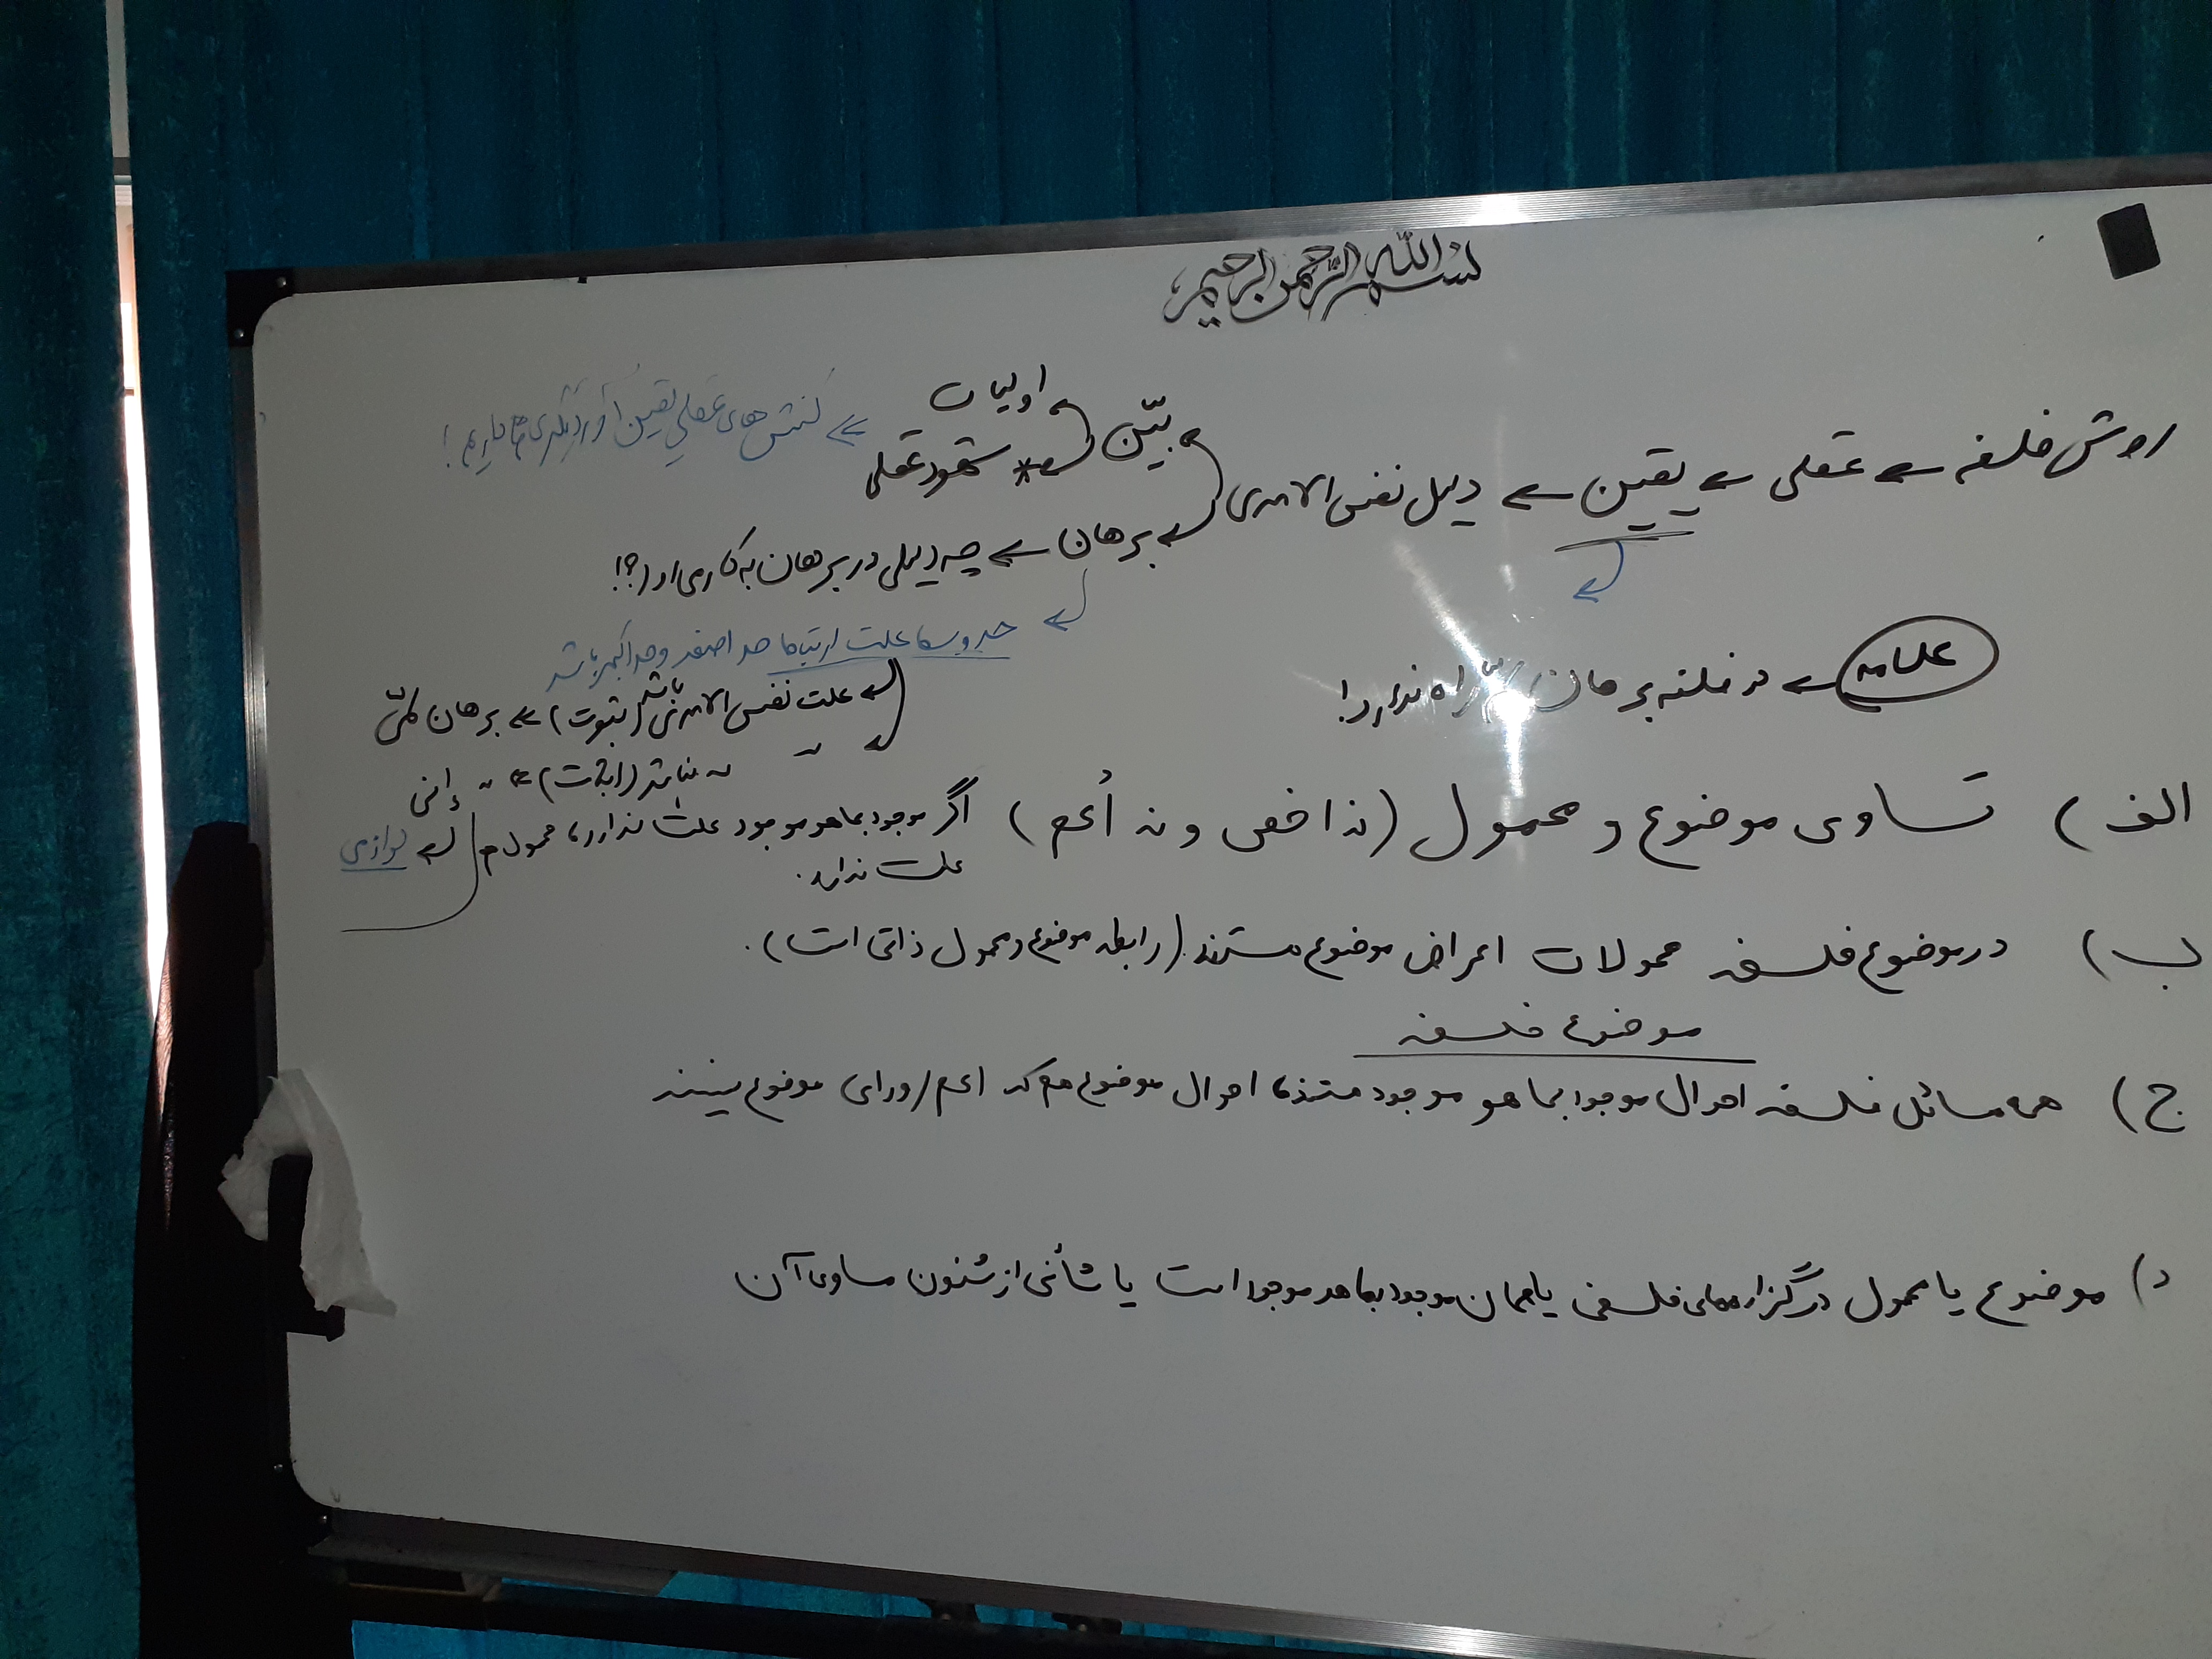 بسم الله الرحمن الرحیم
روش فلسفه ← عقلی ← یقین ← دلیل نفس الامری
بیّن
اولیات
* شهود عقلی ← کنش های عقلی یقین آور دیگری هم داریم!
برهان ← چه دلیلی در برهان به کار می رود؟!
حد وسط علت ارتباط حد اصغر و حد اکبر باشد
علت نفس الامری باشد (ثبوت) ← برهان لمّی
〃 〃 نباشد (اثبات) ← 〃 إنی
لوازمی
علامه ← در فلسفه برهان لمّی راه ندارد!
الف) تساوی موضوع و محمول (نه اخص و نه أعم) اگر موجود بما هو موجود علت ندارد، محمول هم
علت ندارد.
ب) در موضوع فلسفه محمولات اعراض موضوع هستند. (رابطه موضوع و محمول ذاتی است).
موضوع فلسفه
ج) همه مسائل فلسفه احوال موجود بما هو موجود هستند، احوال موضوع هم که اعم/ورای موضوع نیستند
د) موضوع یا محمول در گزاره های فلسفی یا همان موجود بما هو موجود است یا شأنی از شئون مساوی آن